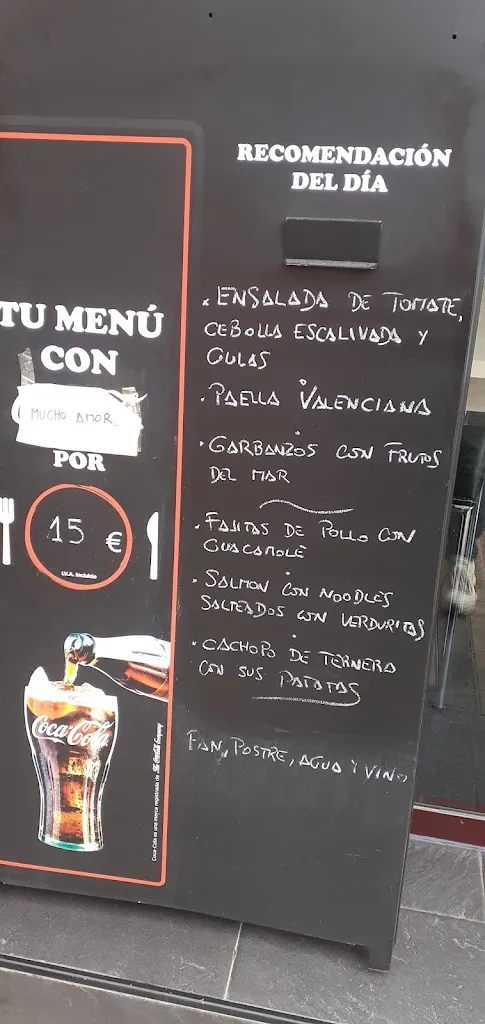 TU MENÚ
CON
MUCHO AMOR..
POR
15 €
I.V.A. Incluido
Coca-Cola
Coca-Cola es una marca registrada de The Coca-Cola Company
RECOMENDACIÓN
DEL DÍA
• ENSALADA DE TOMATE,
CEBOLLA ESCALIVADA Y
GULAS
• PAELLA VALENCIANA
• GARBANZOS CON FRUTOS
DEL MAR
• FAJITAS DE POLLO CON
GUACAMOLE
• SALMON CON NOODLES
SALTEADOS CON VERDURITAS
• CACHOPO DE TERNERA
CON SUS PATATAS
PAN, POSTRE, AGUA Y VINO